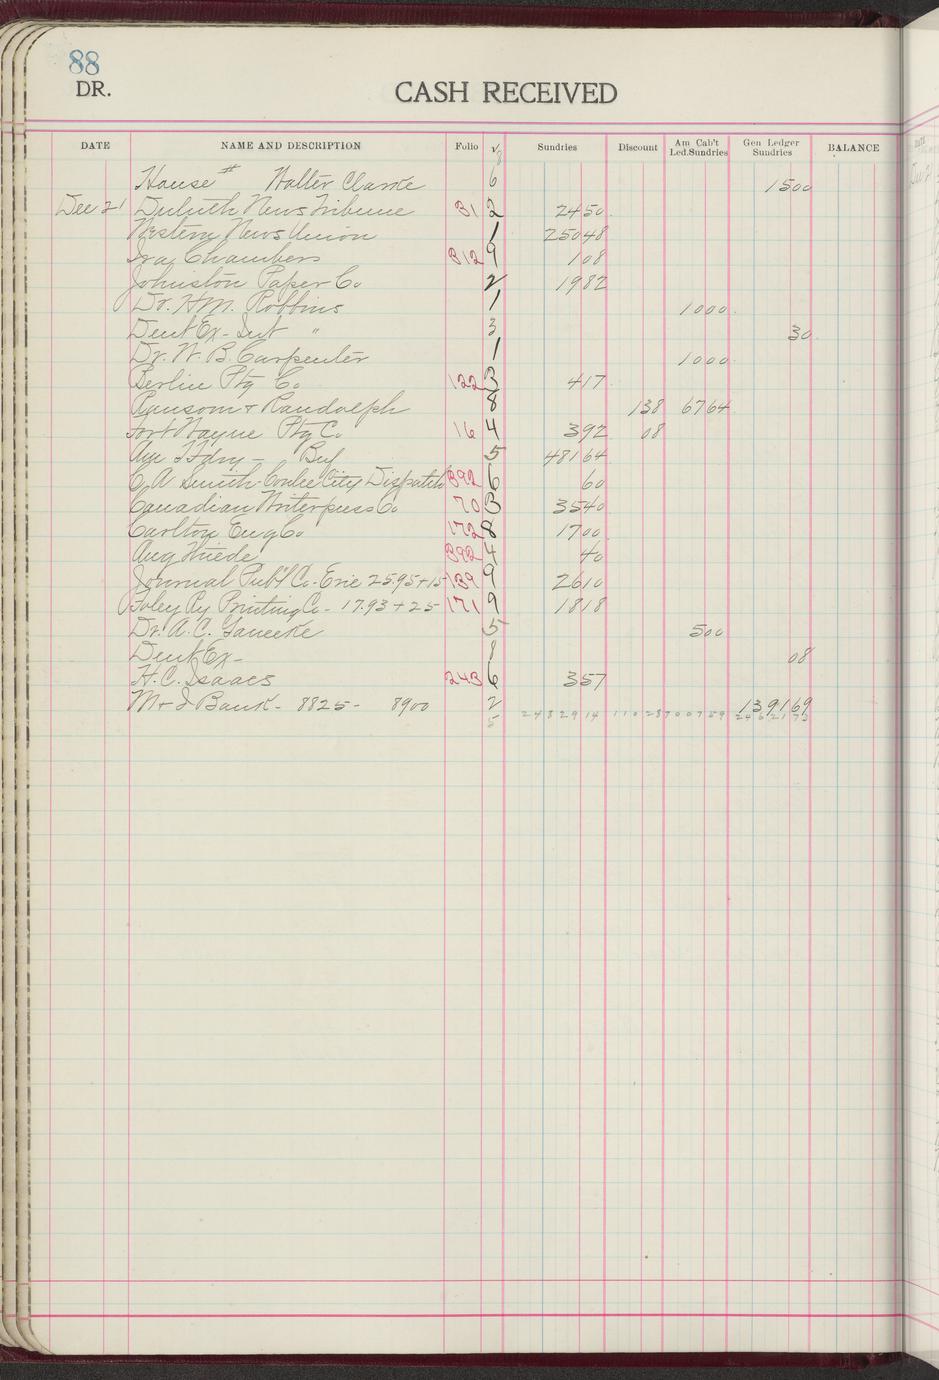 88
DR.
CASH RECEIVED
DATE NAME AND DESCRIPTION Folio √ Sundries Discount Am Cab't Led.Sundries Gen Ledger Sundries BALANCE
8
House # Walter Clarke 6 1500
Dec 21 Duluth News Tribune 31 2 2450
Western News Union 1 25048
Ira Chambers 312 9 108
Johnston Paper Co 2 1982
Dr. H.M. Robbins 1 1000
Dent Ex - Int " 3 30
Dr. W. B. Carpenter 1 1000
Berlin Ptg Co. 122 3 417
Ransom & Randolph 8 138 6764
Fort Wayne Ptg C. 16 4 392 08
Am T Fdry - Buf 5 48164
C A Smith - Coulee City Dispatch 392 6 60
Canadian Writerpress Co 70 3 3540
Carlton Eng Co 172 8 1700
Aug Thiede 392 4 40
Journal Publ Co. - Erie 25.95 + 15 139 9 2610
Foley Ry Printing Co - 17.93 + 25 171 9 1818
Dr. A. C. 5 500
Dent Ex - 8 08
H. C. Isaacs 243 6 357
M & I Bank - 8825 - 8900 2 139169
5 24829 14 110 28 7007 59 24621 73